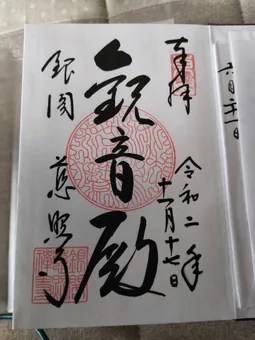 奉拝
令和二年
十一月十七日
観音殿
銀閣
慈照寺
六月二十一日